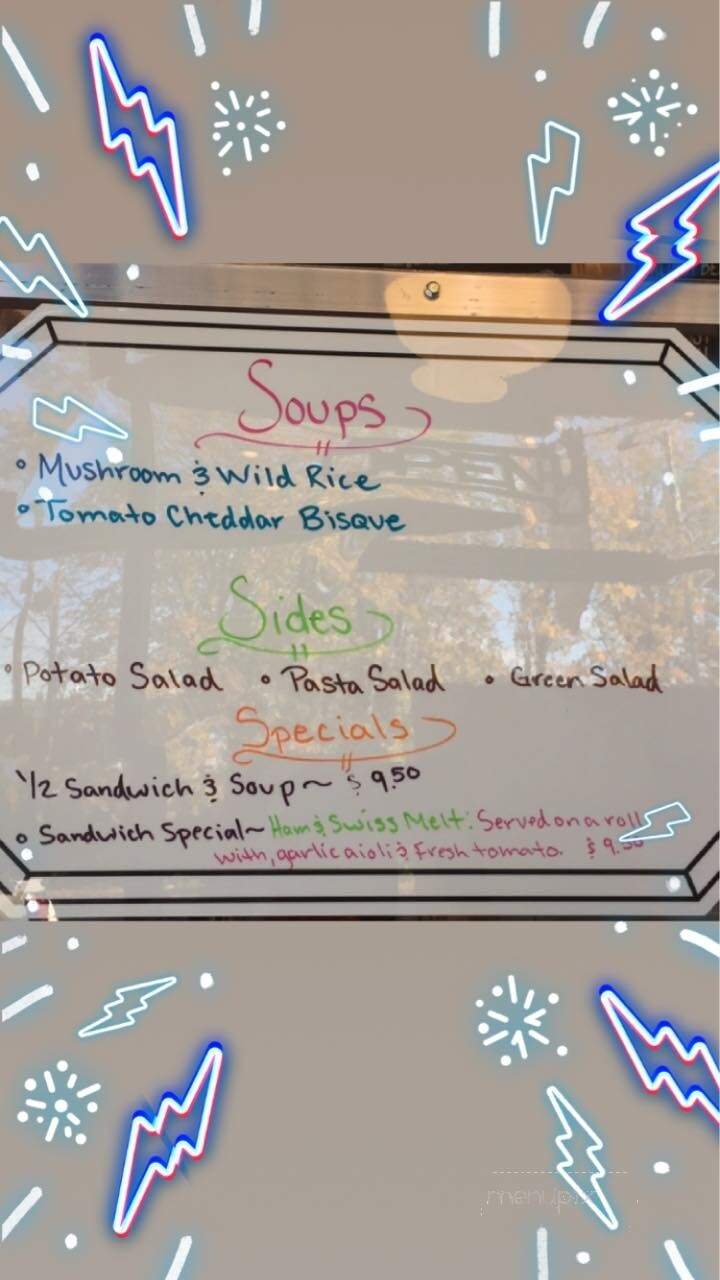 Soups
• Mushroom & Wild Rice
• Tomato Cheddar Bisque
Sides
• Potato Salad • Pasta Salad • Green Salad
Specials
1/2 Sandwich & Soup ~ $9.50
• Sandwich Special ~ Ham & Swiss Melt: Served on a roll
with, garlic aioli & Fresh tomato.
menupix